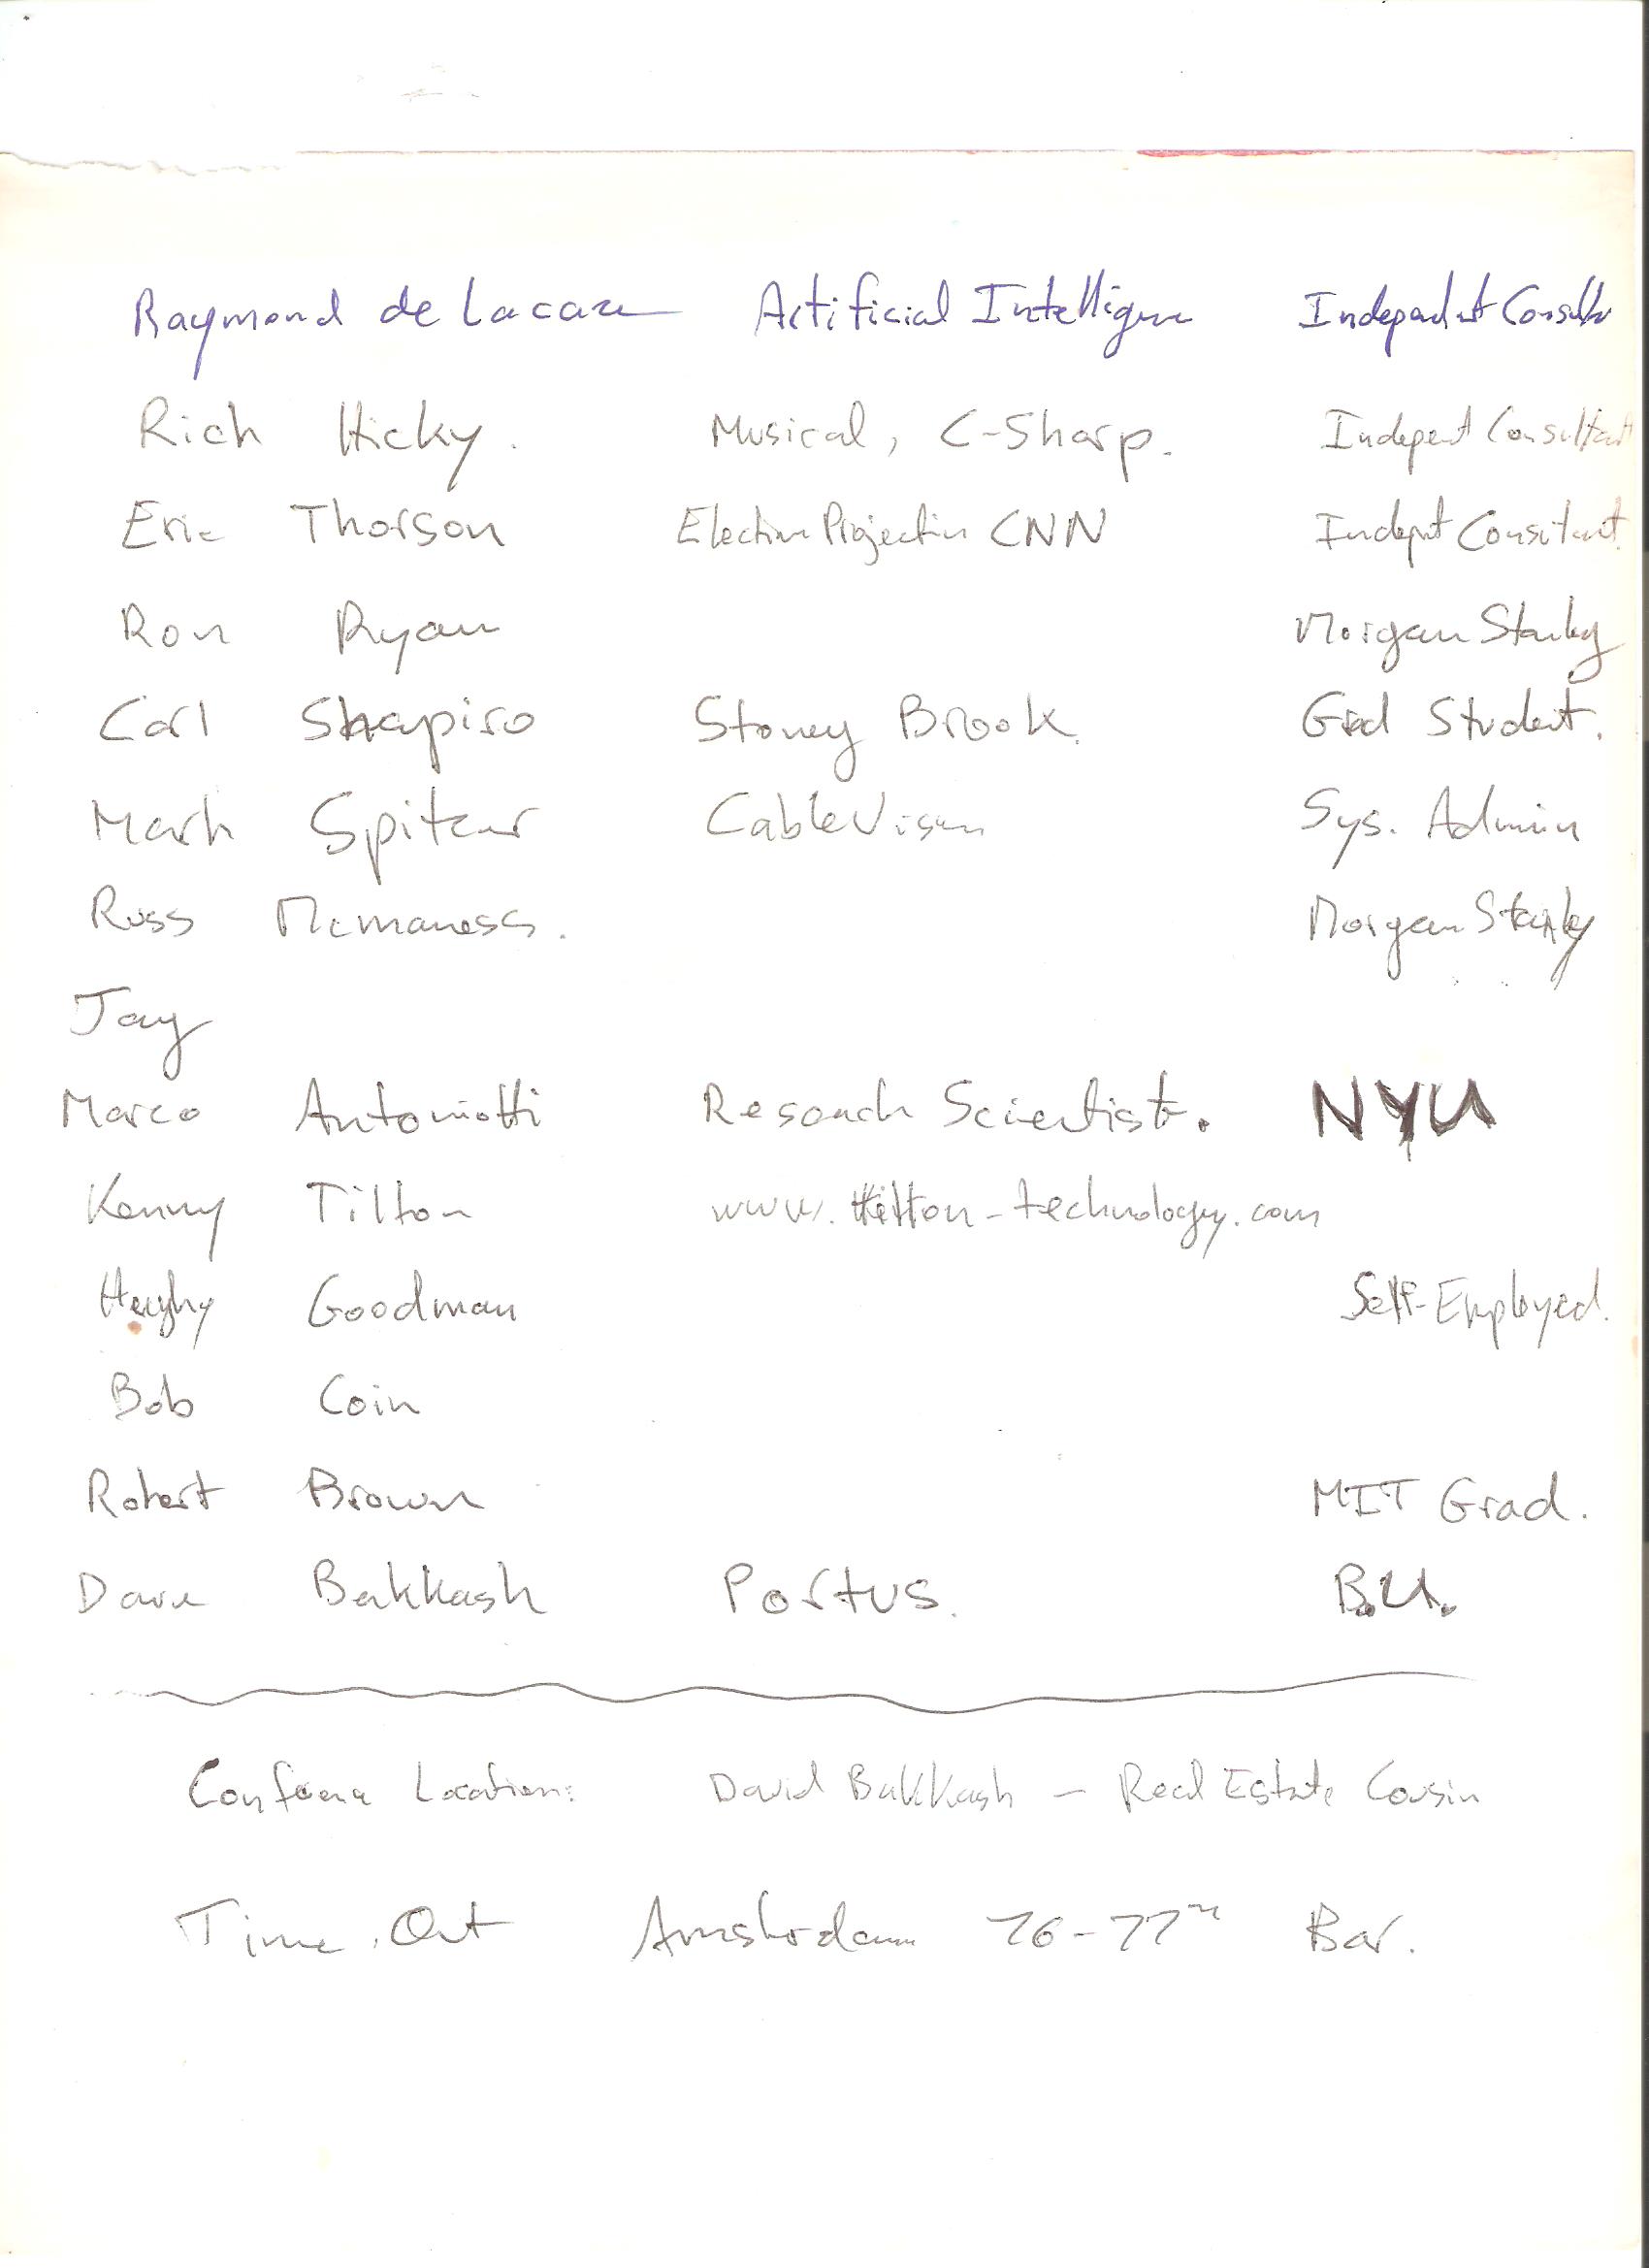 Raymond de Lacaze Artificial Intelligence Independent Consultant
Rich Hicky. Musical, C-Sharp. Indepent Consultant
Eric Thorson Election Projection CNN Indept Consitant.
Ron Ryan Morgan Stanley
Carl Shapiro Stoney Brook. Grad Student.
Mark Spitzer CableVision Sys. Admin
Russ Mcmaness. Morgan Stanley
Jay
Marco Antoniotti Research Scientist. NYU
Kenny Tilton www.tilton-technology.com
Goodman Self-Employed.
Bob Coin
Robert Brown MIT Grad.
Dave Bakkash Portus. B.U.
Conference Location: David Bakkash - Real Estate Cousin
Time Out Amsterdam 76-77th Bar.